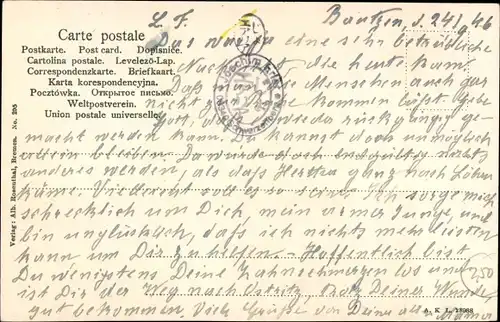 L. F. Bautzen, d. 24/1. 46
Carte postale
Postkarte. Post card. Dopisnice.
Cartolina postale. Levelező-Lap.
Correspondenzkarte. Briefkaart.
Karta korespondencyjna.
Pocztówka. Открытое письмо.
Weltpostverein.
Union postale universelle.
Das war eine sehr betrübliche
Nachricht, die heute kam.
Daß die Menschen auch gar
nicht zur Ruhe kommen läßt. Gebe
Gott, daß wieder rückgängig ge-
macht werden kann. Du kannst doch unmöglich
allein bleiben. Da würde doch endgültig nichts
anderes werden, als daß Hertha ganz nach Löbau
käme. Vielleicht soll es so sein. Ich sorge mich
schrecklich um Dich, mein armer Junge, und
bin unglücklich, daß ich nichts mehr leisten
kann um Dir zu helfen. - Hoffentlich bist
Du wenigstens Deine Zahnschmerzen los und
ist Dir der Weg nach Ostritz, trotz Deiner Wunde,
gut bekommen. Viele Grüße von Deiner alten Mama
Verlag: Alb. Rosenthal, Bremen. No. 295
A. K. L. 13968
250